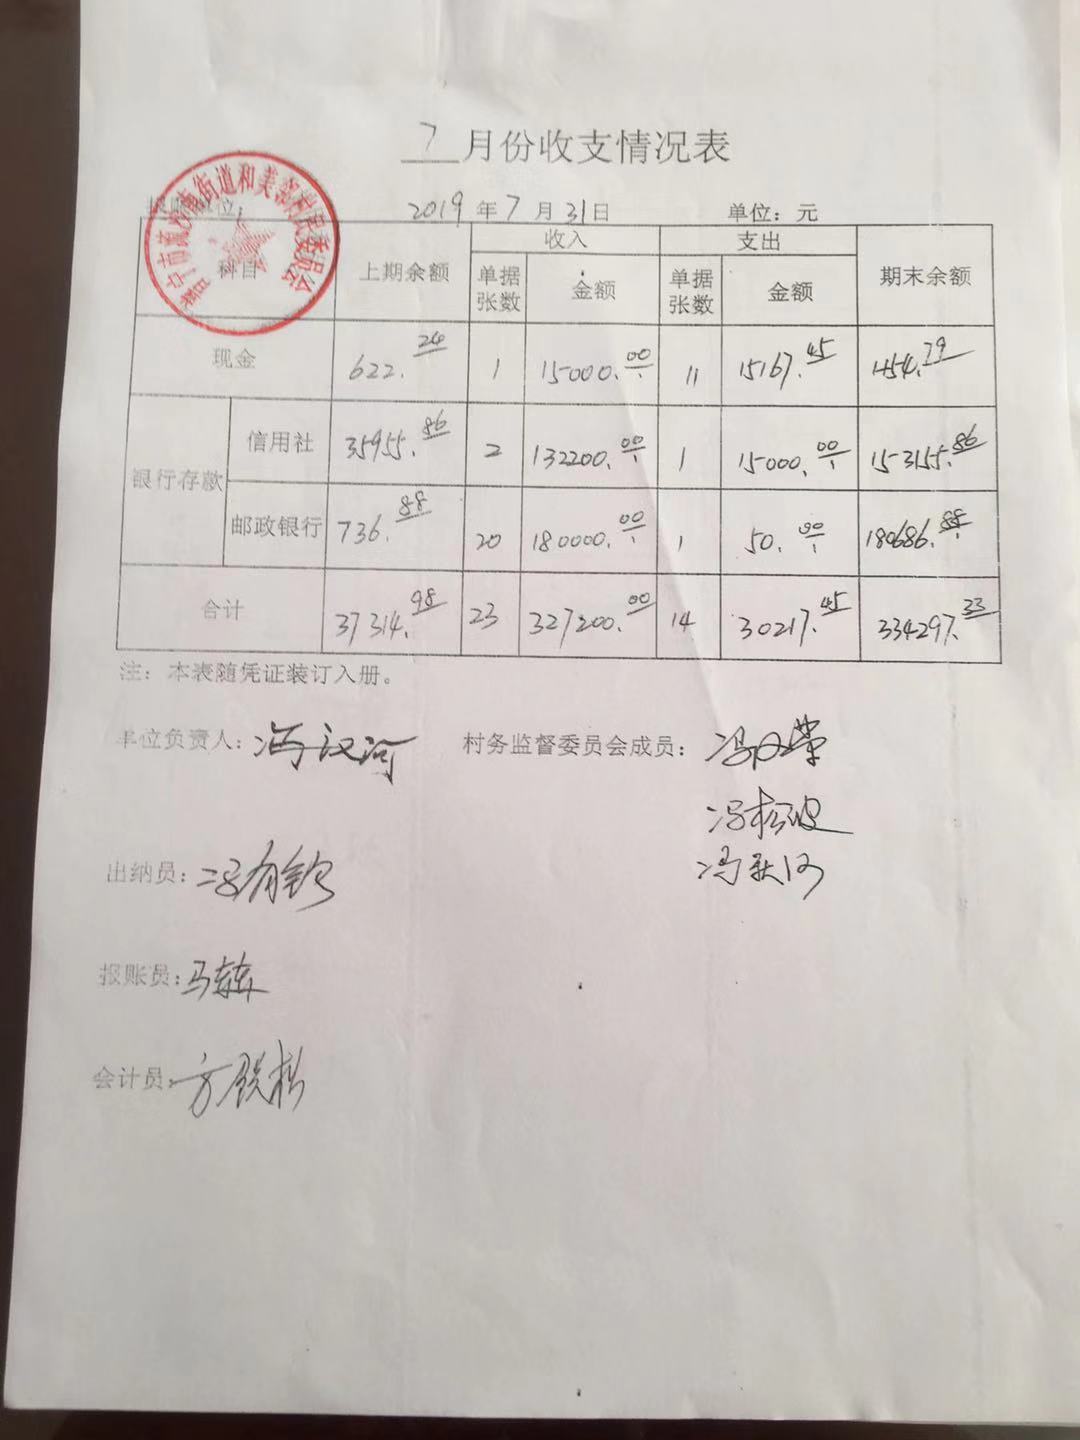 7月份收支情况表
单位: 2019年7月31日 单位：元
科目 上期余额 收入 支出 期末余额
单据张数 金额 单据张数 金额
现金 622.24 1 15000.00 11 15167.45 454.79
银行存款 信用社 35955.86 2 132200.00 1 15000.00 153155.86
邮政银行 736.88 20 180000.00 1 50.00 180686.88
合计 37314.98 23 327200.00 14 30217.45 334297.33
注：本表随凭证装订入册。
单位负责人：冯汉河 村务监督委员会成员：冯
冯松波
冯
出纳员：冯有
报账员：马
会计员：方
街道和美 村民委员会